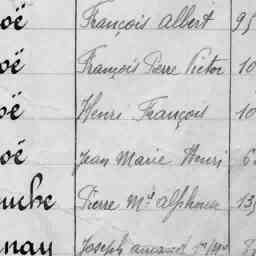 oë François Albert 95
oë François Pierre Victor 10
oë Henri François 10
oë Jean Marie Henri 6
uche Pierre Mie Alphonse 13
nay Joseph Amand